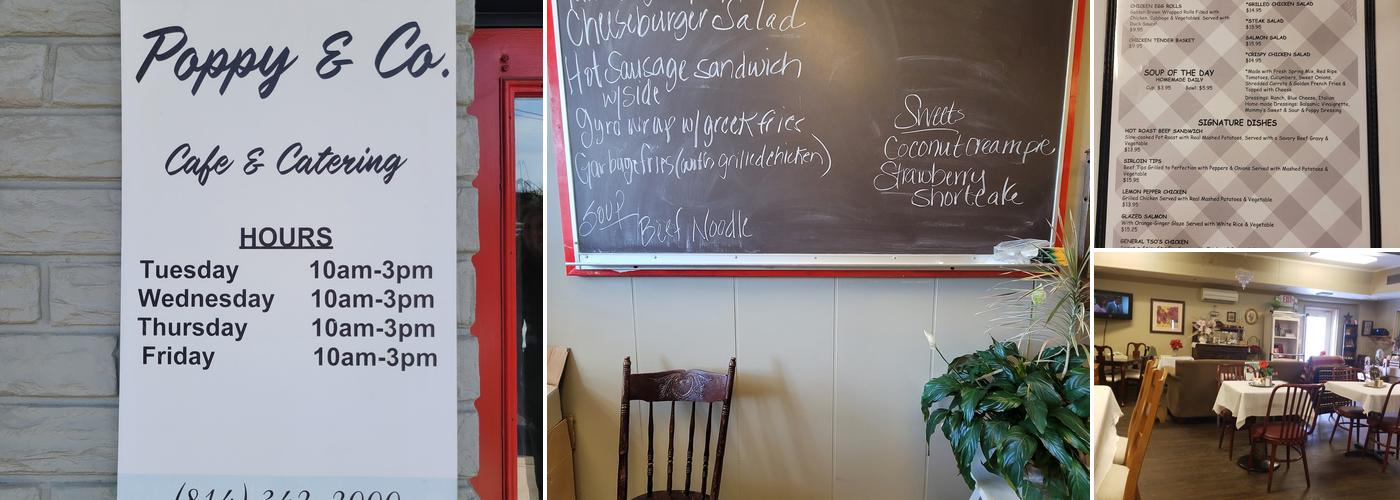 Poppy & Co.
Cafe & Catering
HOURS
Tuesday 10am-3pm
Wednesday 10am-3pm
Thursday 10am-3pm
Friday 10am-3pm
Cheeseburger Salad
Hot Sausage sandwich
w/side
gyro wrap w/greek fries
Garbage fries (with grilled chicken)
Soup
Beef Noodle
Sweets
Coconut cream pie
Strawberry
Shortcake
CHICKEN EGG ROLLS
Golden Brown Wrapped Rolls Filled with
Chicken, Cabbage & Vegetables. Served with
Duck Sauce
$9.95
CHICKEN TENDER BASKET
$9.95
SOUP OF THE DAY
HOMEMADE DAILY
Cup: $3.95 Bowl: $5.95
*GRILLED CHICKEN SALAD
$14.95
*STEAK SALAD
$15.95
SALMON SALAD
$15.95
*CRISPY CHICKEN SALAD
$14.95
*Made with Fresh Spring Mix, Red Ripe
Tomatoes, Cucumbers, Sweet Onions,
Shredded Carrots & Golden French Fries &
Topped with Cheese
Dressings: Ranch, Blue Cheese, Italian
Home-made Dressings: Balsamic Vinaigrette,
Mommy's Sweet & Sour & Poppy Dressing
SIGNATURE DISHES
HOT ROAST BEEF SANDWICH
Slow-cooked Pot Roast with Real Mashed Potatoes, Served with a Savory Beef Gravy &
Vegetable
$13.95
SIRLOIN TIPS
Beef Tips Grilled to Perfection with Peppers & Onions Served with Mashed Potatoes &
Vegetable
$15.95
LEMON PEPPER CHICKEN
Grilled Chicken Served with Real Mashed Potatoes & Vegetable
$13.95
GLAZED SALMON
With Orange-Ginger Glaze Served with White Rice & Vegetable
$15.25
GENERAL TSO'S CHICKEN